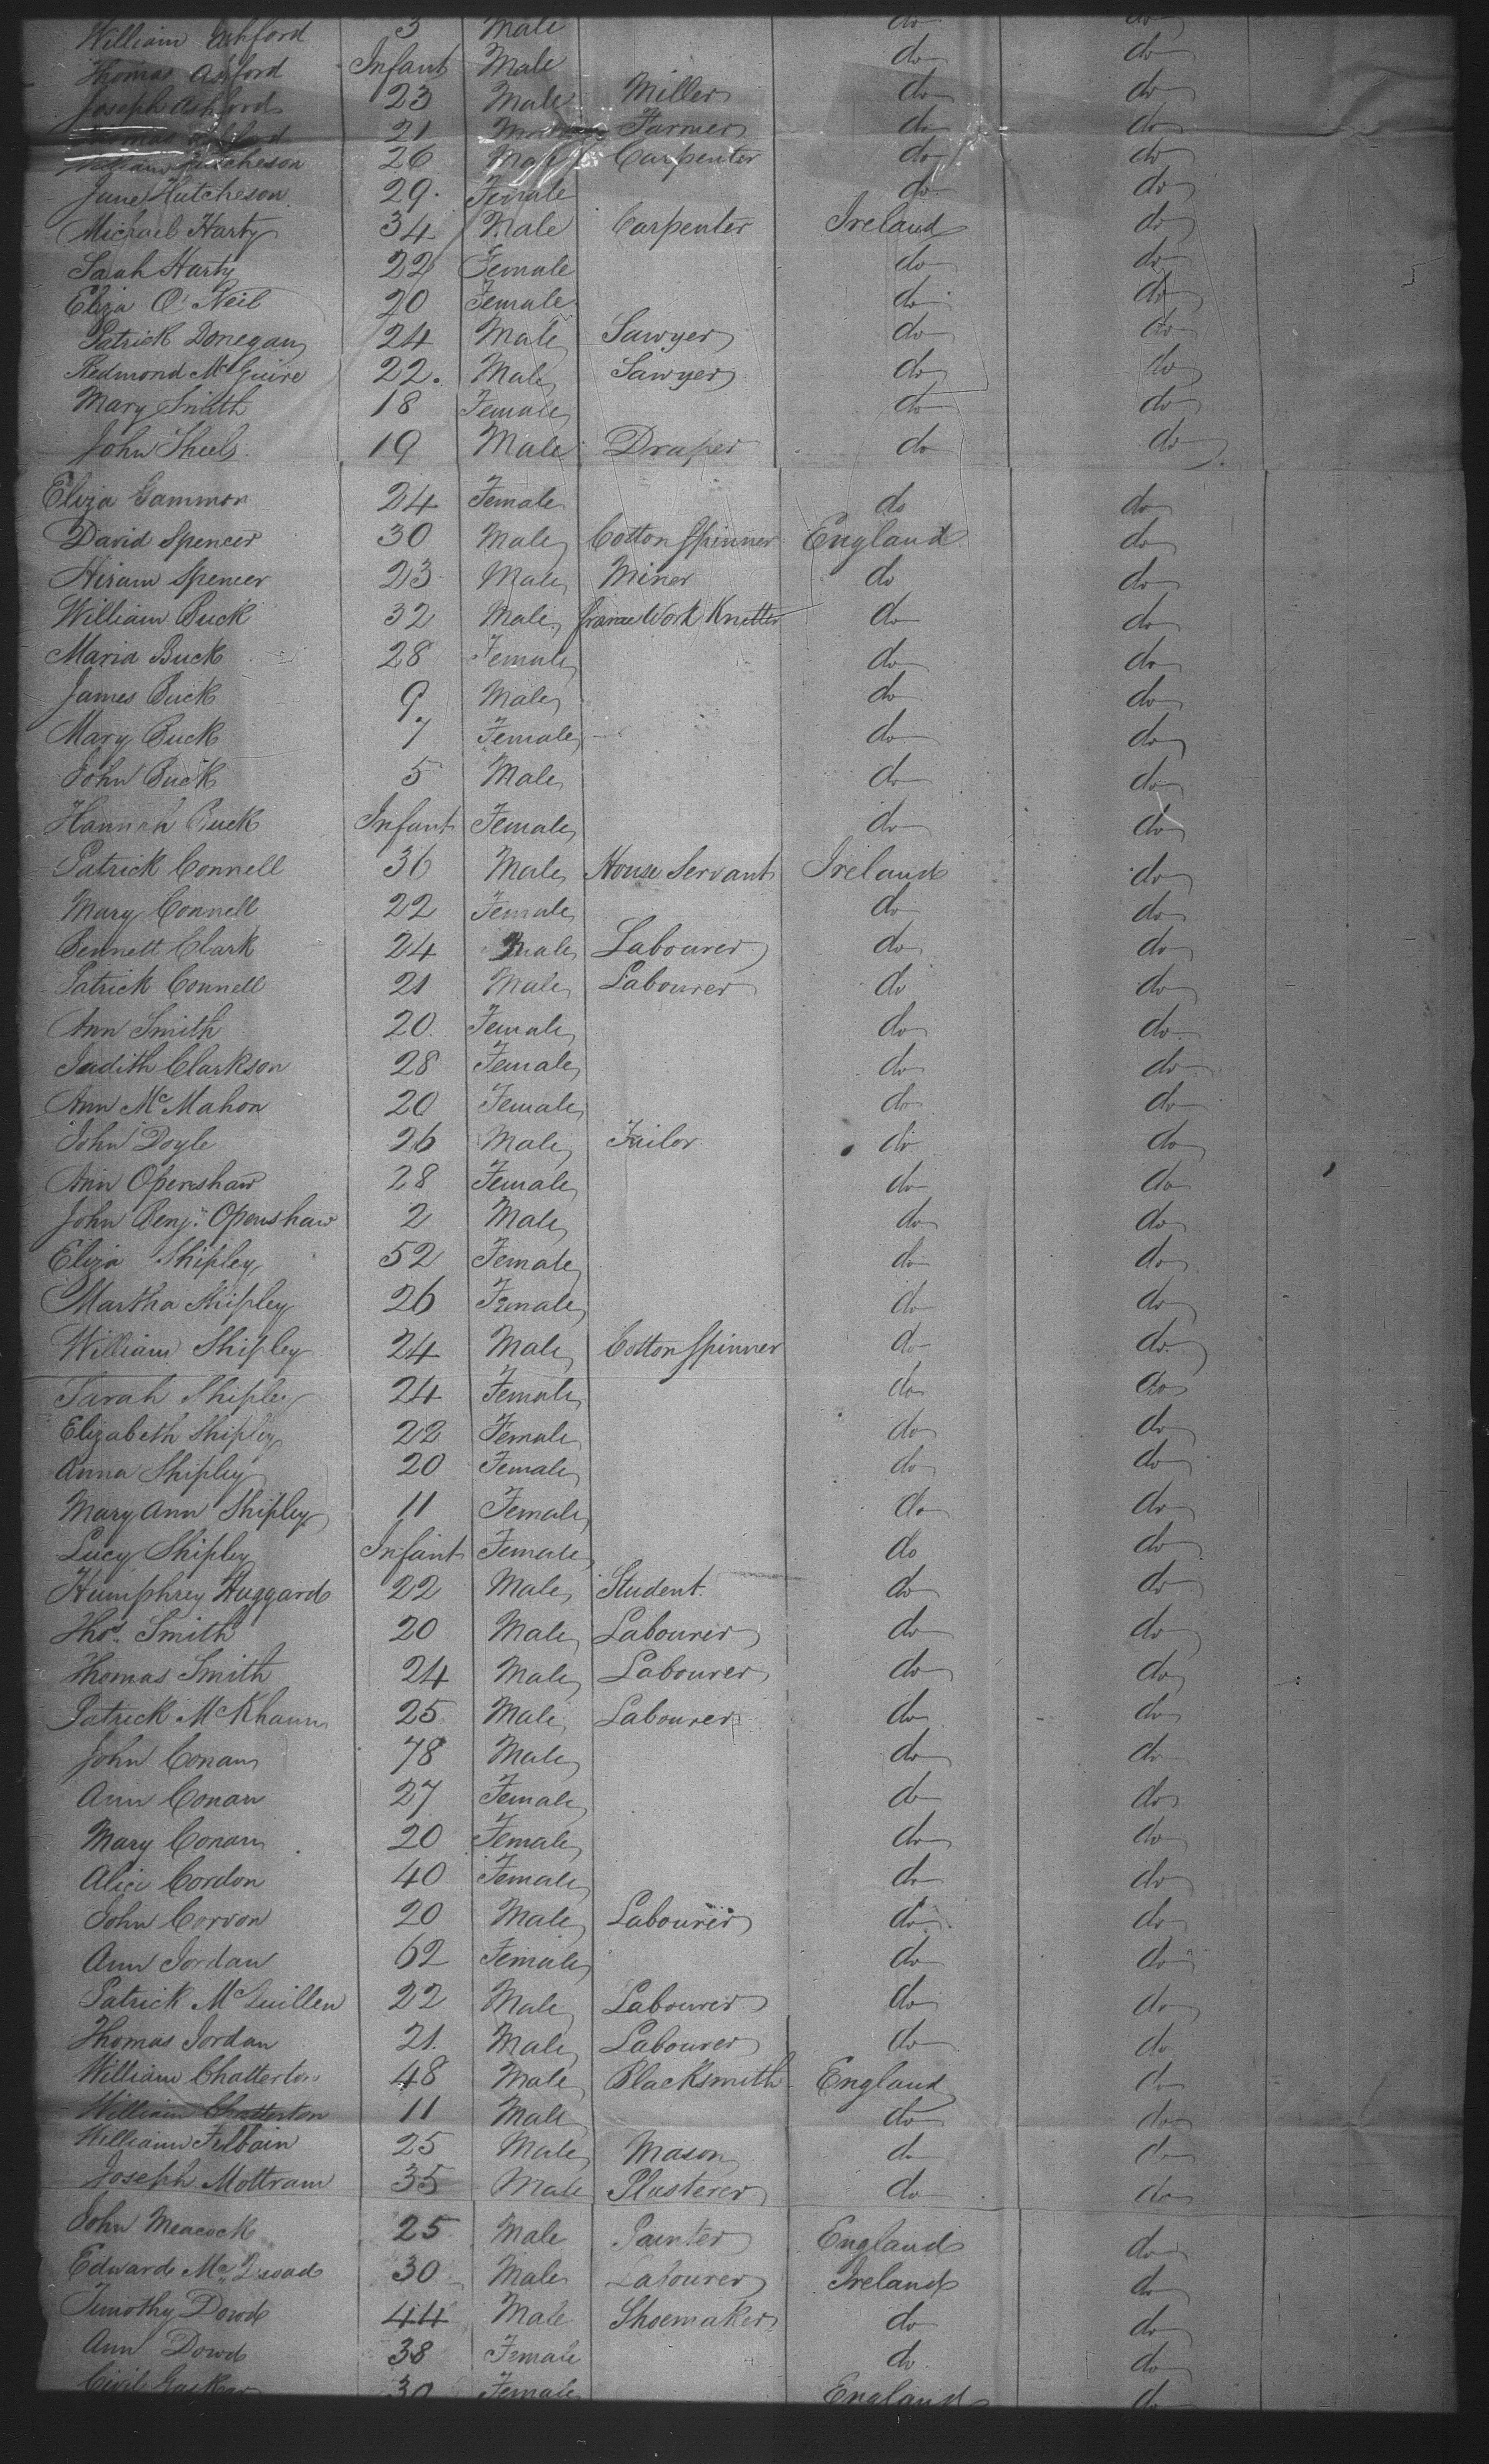 William Ashford 3 Male do do
Thomas Ashford Infant Male do do
Joseph Ashford 23 Male Miller do do
21 Farmer do do
William Hutcheson 26 Male Carpenter do do
Jane Hutcheson 29 Female do do
Michael Harty 34 Male Carpenter Ireland do
Sarah Harty 22 Female do do
Eliza O'Neil 20 Female do do
Patrick Donegan 24 Male Sawyer do do
Redmond McGuire 22 Male Sawyer do do
Mary Smith 18 Female do do
John Sheels 19 Male Draper do do
Eliza Gammon 24 Female do do
David Spencer 30 Male Cotton Spinner England do
Hiram Spencer 23 Male Miner do do
William Buck 32 Male frame Work Knitter do do
Maria Buck 28 Female do do
James Buck 9 Male do do
Mary Buck 7 Female do do
John Buck 5 Male do do
Hannah Buck Infant Female do do
Patrick Connell 36 Male House Servant Ireland do
Mary Connell 22 Female do do
Bennett Clark 24 Male Labourer do do
Patrick Connell 21 Male Labourer do do
Ann Smith 20 Female do do
Judith Clarkson 28 Female do do
Ann McMahon 20 Female do do
John Doyle 26 Male Tailor do do
Ann Openshaw 28 Female do do
John Benj.n Openshaw 2 Male do do
Eliza Shipley 52 Female do do
Martha Shipley 26 Female do do
William Shipley 24 Male Cotton Spinner do do
Sarah Shipley 24 Female do do
Elizabeth Shipley 22 Female do do
Anna Shipley 20 Female do do
Mary Ann Shipley 11 Female do do
Lucy Shipley Infant Female do do
Humphrey Huggard 22 Male Student do do
Thos. Smith 20 Male Labourer do do
Thomas Smith 24 Male Labourer do do
Patrick McKhann 25 Male Labourer do do
John Conan 78 Male do do
Ann Conan 27 Female do do
Mary Conan 20 Female do do
Alice Cordon 40 Female do do
John Corvon 20 Male Labourer do do
Ann Jordan 62 Female do do
Patrick McQuillen 22 Male Labourer do do
Thomas Jordan 21 Male Labourer do do
William Chatterton 48 Male Blacksmith England do
William Chatterton 11 Male do do
William 25 Male Mason do do
Joseph Mottram 35 Male Plasterer do do
John Meacock 25 Male Painter England do
Edward 30 Male Labourer Ireland do
Timothy Dowd 44 Male Shoemaker do do
Ann Dowd 38 Female do do
30 Female England do